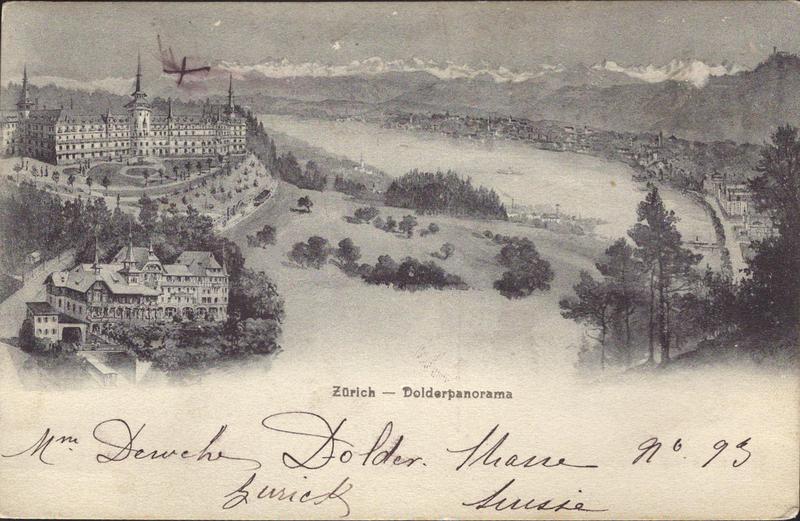 Zürich — Dolderpanorama
Mme Dewche Dolder. Strasse No. 93
Zurich Suisse